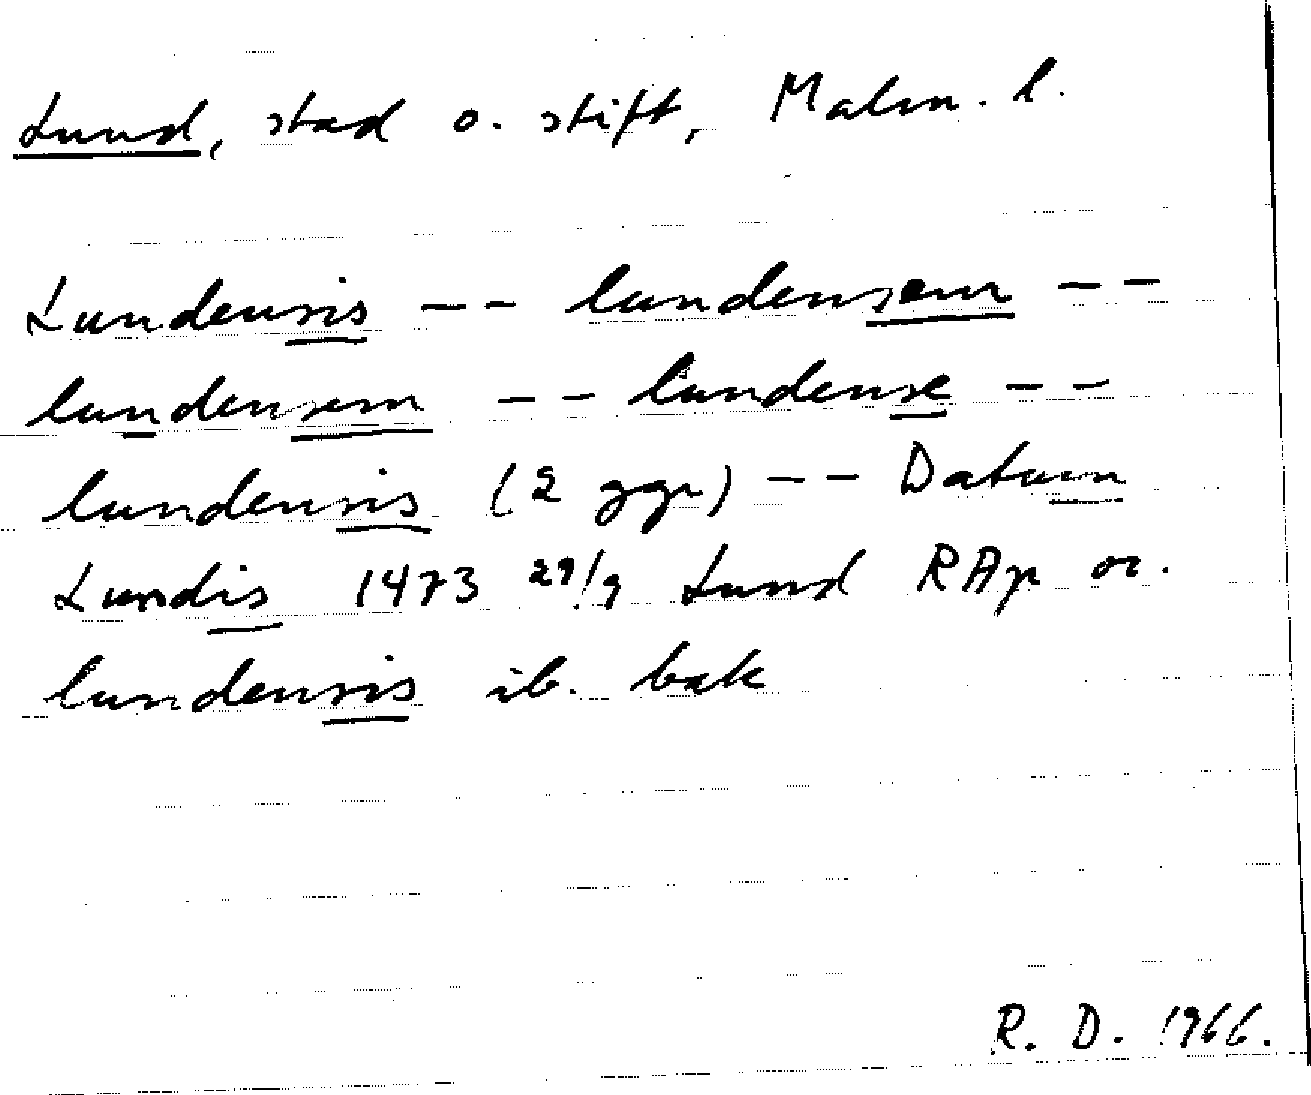 Lund, stad o. stift, Malm. l.
Lundensis -- lundensem --
lundensem -- lundense --
lundensis (2 ggr) -- Datum
Lundis 1473 29/9 Lund RAp or.
lundensis ib. bak
R. D. 1966.